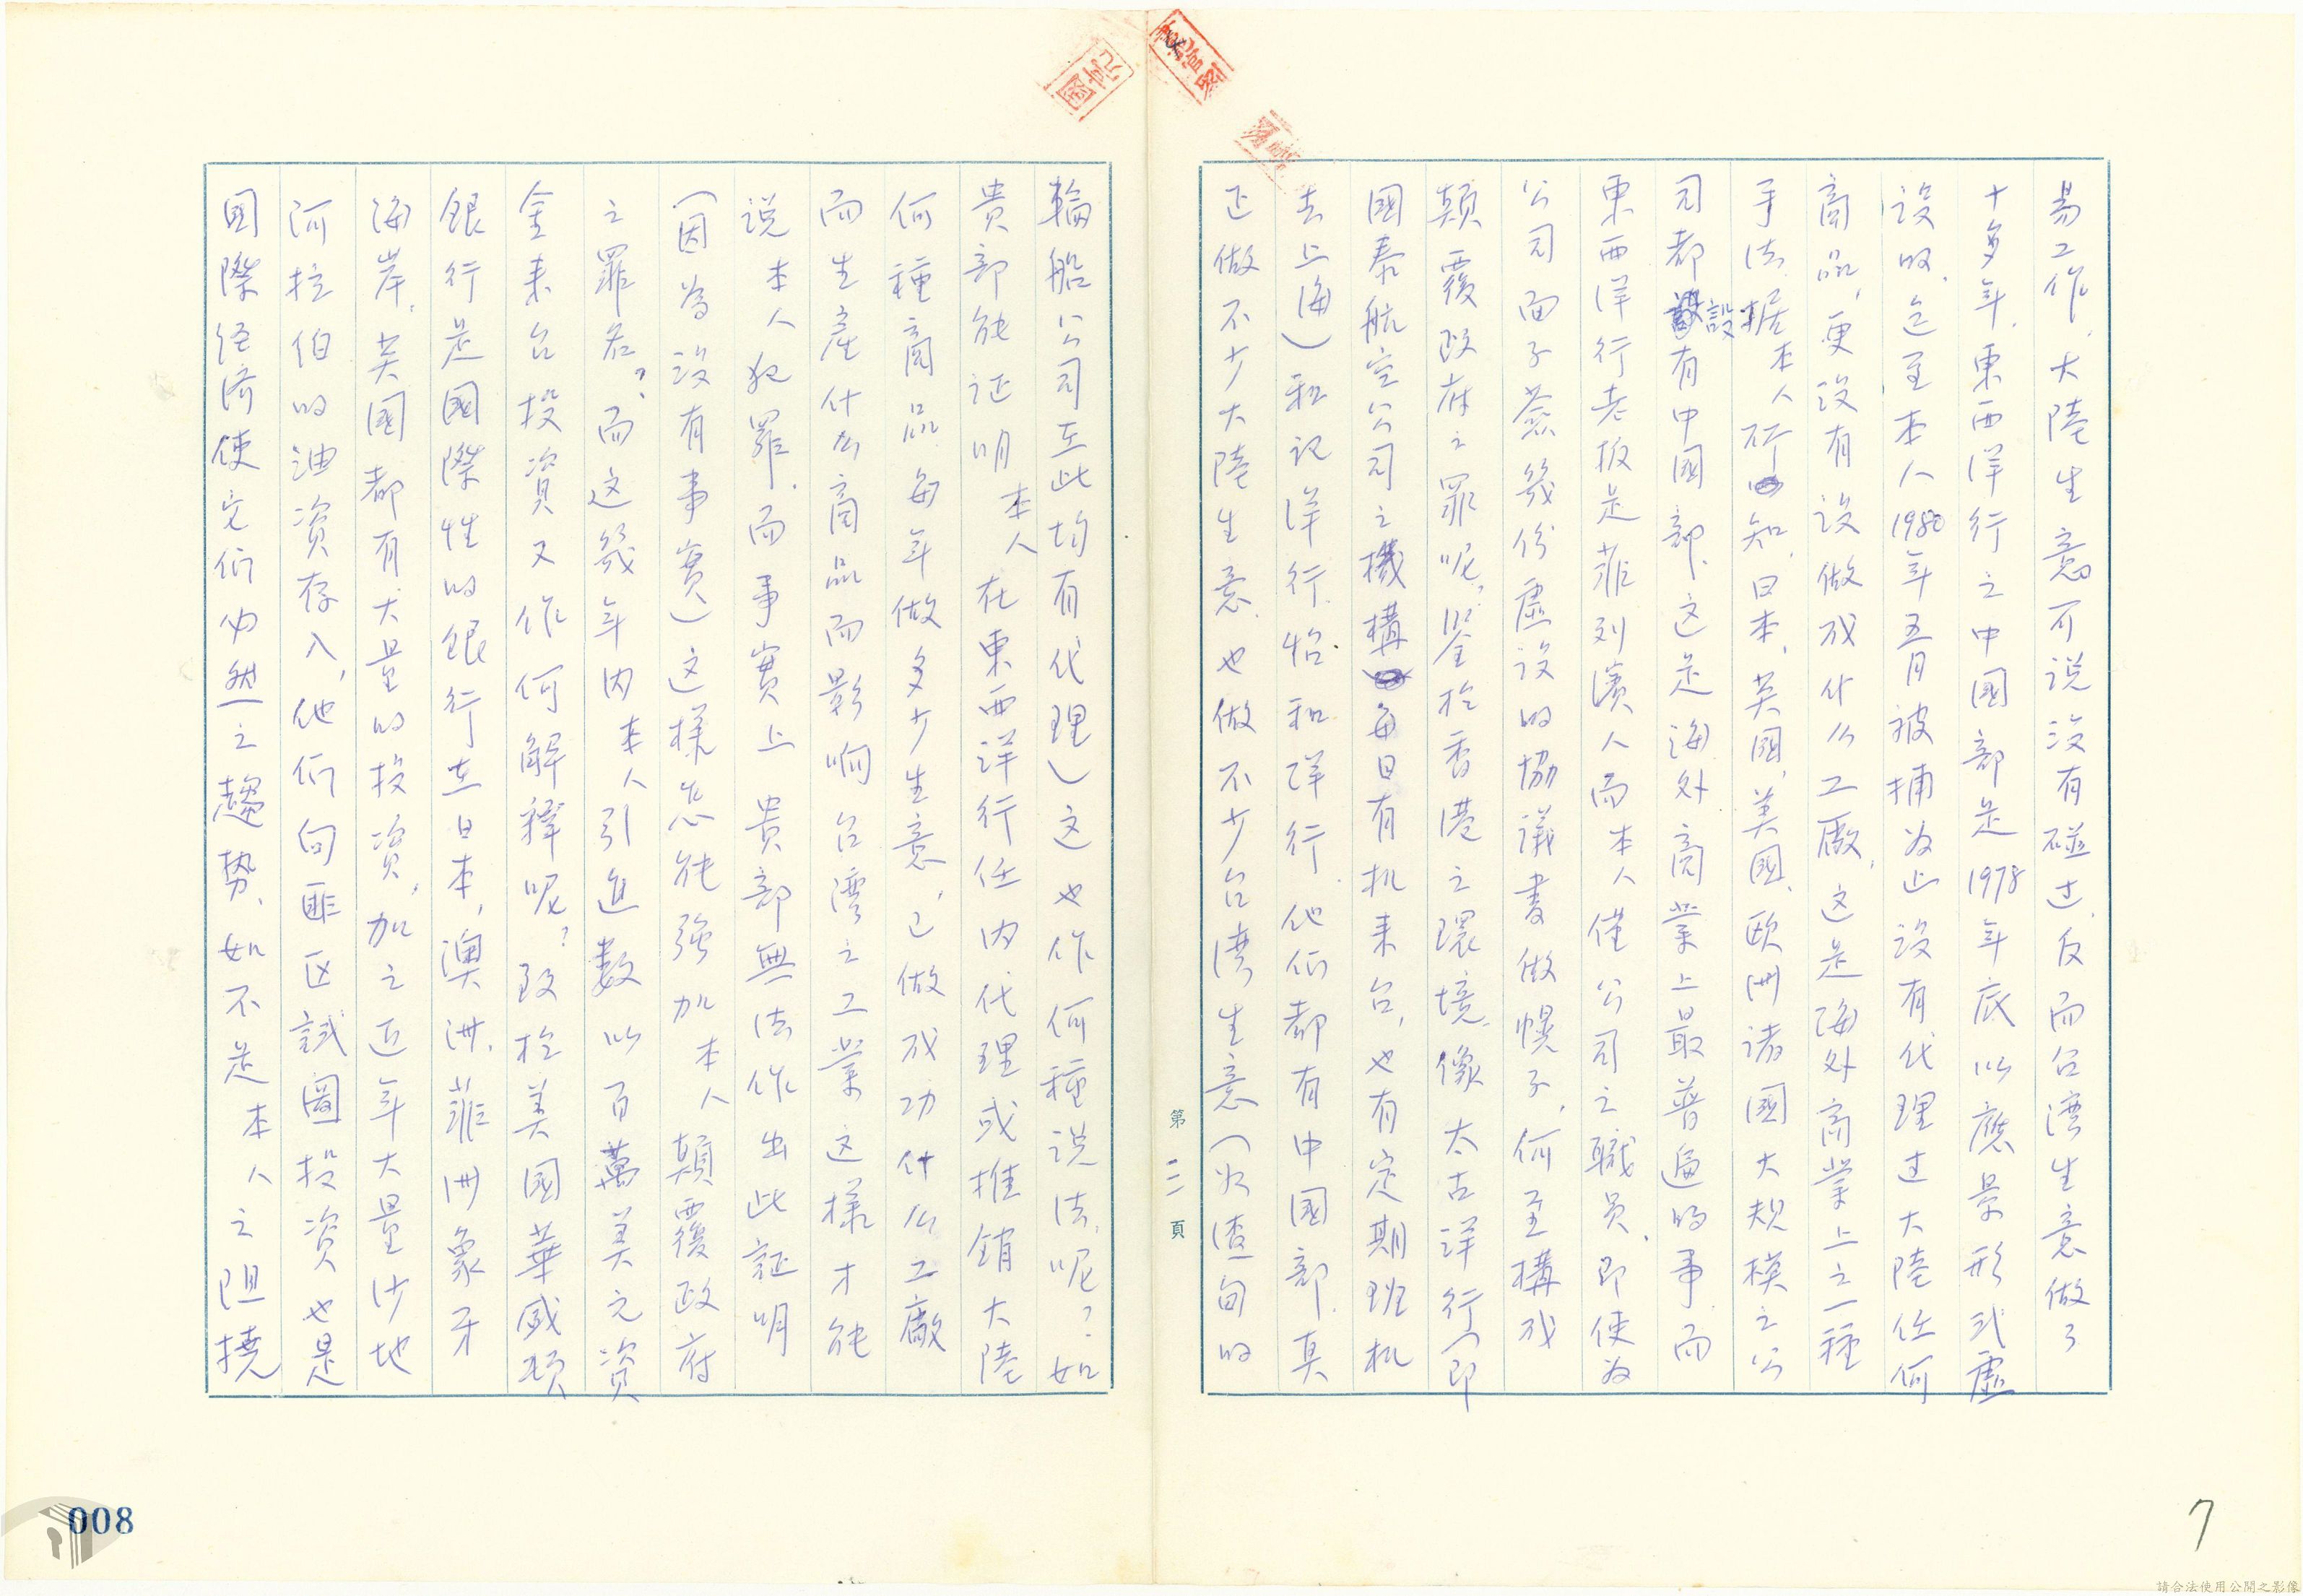 易工作、大陸生意可说没有碰过、反而台湾生意做了
十多年、東西洋行之中國部是1978年底以應景形式虛
设的、迄至本人1980年五月被捕为止没有代理过大陸任何
商品，更没有设做成什么工廠，这是海外商業上之一種
手法、据本人所知，日本、英國、美國、欧洲諸國大規模之公
司都設有中國部、这是海外商業上最普遍的事、而
東西洋行老板是菲列濱人而本人僅公司之職员、即使为
公司面子簽幾份虛设的協議書做幌子，何至構成
顛覆政府之罪呢？鑒於香港之環境、像太古洋行（即
國泰航空公司之機構每日有机来台，也有定期班机
去上海）和记洋行、怡和洋行、他们都有中國部、真
正做不少大陸生意、也做不少台湾生意（火渣甸的
第 二 頁
輪船公司在此均有代理）这也作何種说法呢？如
貴部能证明本人在東西洋行任内代理或推銷大陸
何種商品、每年做多少生意，已做成功什么工廠
而生產什么商品而影响台湾之工業这樣才能
说本人犯罪、而事實上貴部無法作出此証明
（因為没有事實）这樣怎能強加本人顛覆政府
之罪名？而这幾年内本人引進數以百萬美元资
金来台投資又作何解釋呢？致於美國華盛頓
銀行是國際性的銀行在日本，澳洲、菲洲象牙
海岸、英國都有大量的投资，加之近年大量沙地
阿拉伯的油资存入，他们向匪区試圖投资也是
國際经济使它们必然之趨势、如不是本人之阻撓
008
7
請合法使用公開之影像